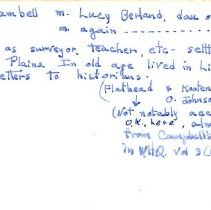 ambell m. Lucy Berland, dau o
m. again
as surveyor, teacher, etc- settl
Plains. In old age lived in Li
etters to historians.
(Flathead & Kooten
O. Johnso
(Not notably acc
O.K., here, alm
from Campbell's
in WHQ. vol 8(